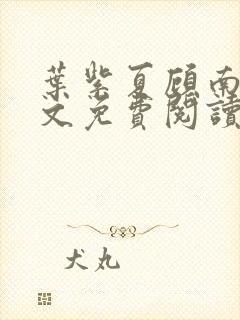 葉紫夏顧南
文免費閱讀
犬丸